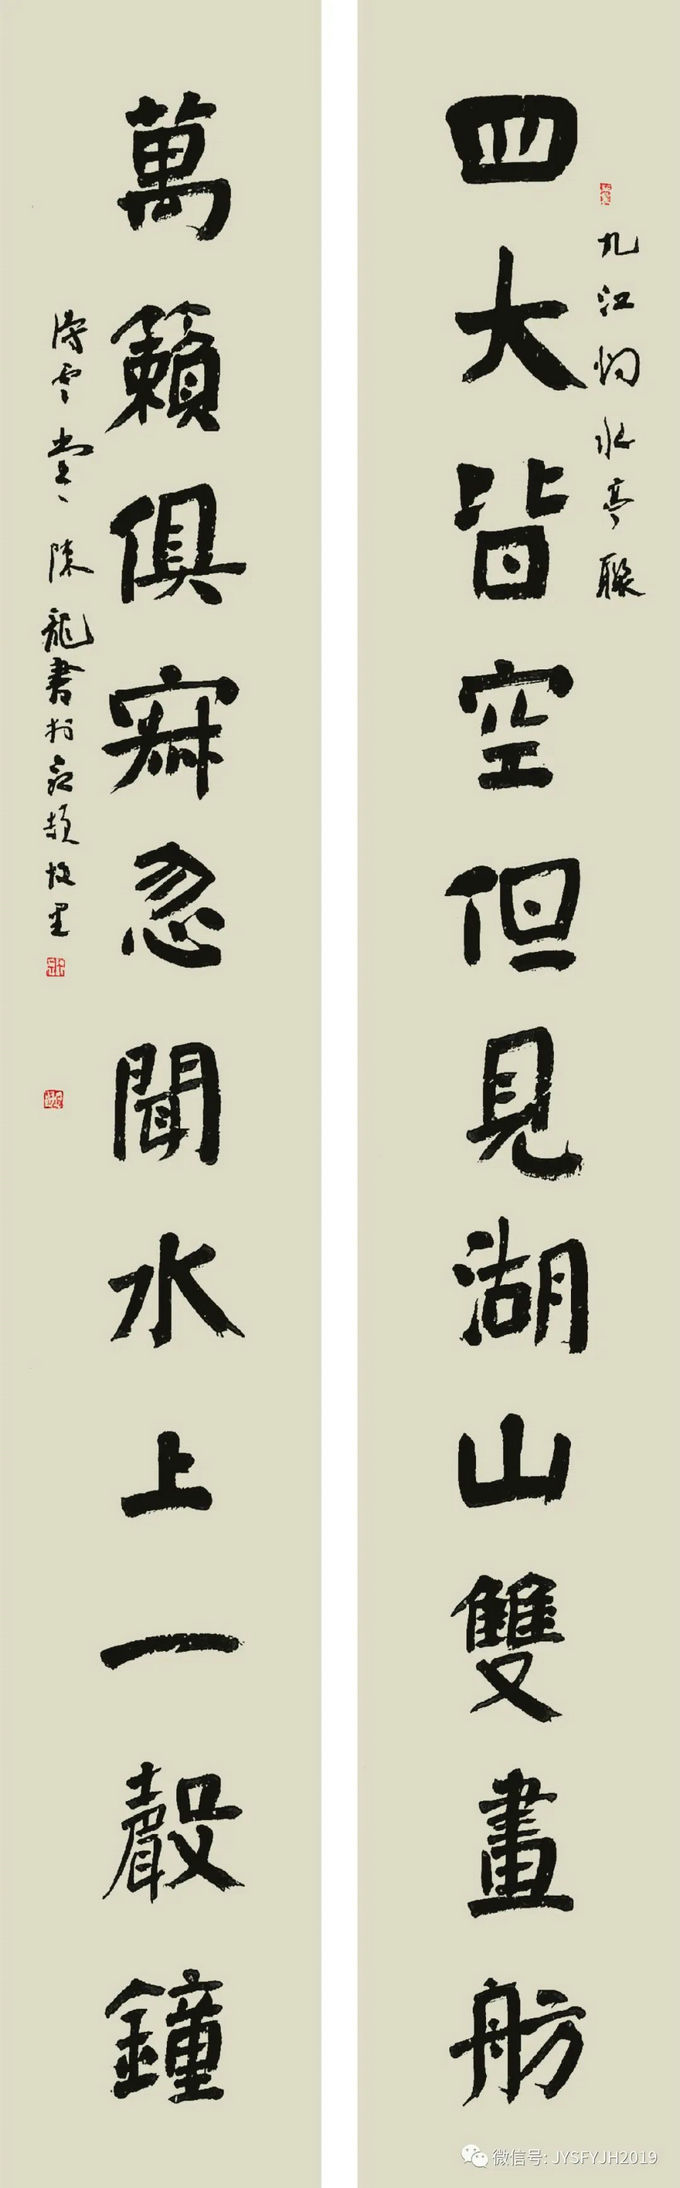 九江烟水亭聯
四大皆空但見湖山雙畫舫
萬籟俱寂忽聞水上一聲鐘
陳龍書於
故里
微信号: JYSFYJH2019